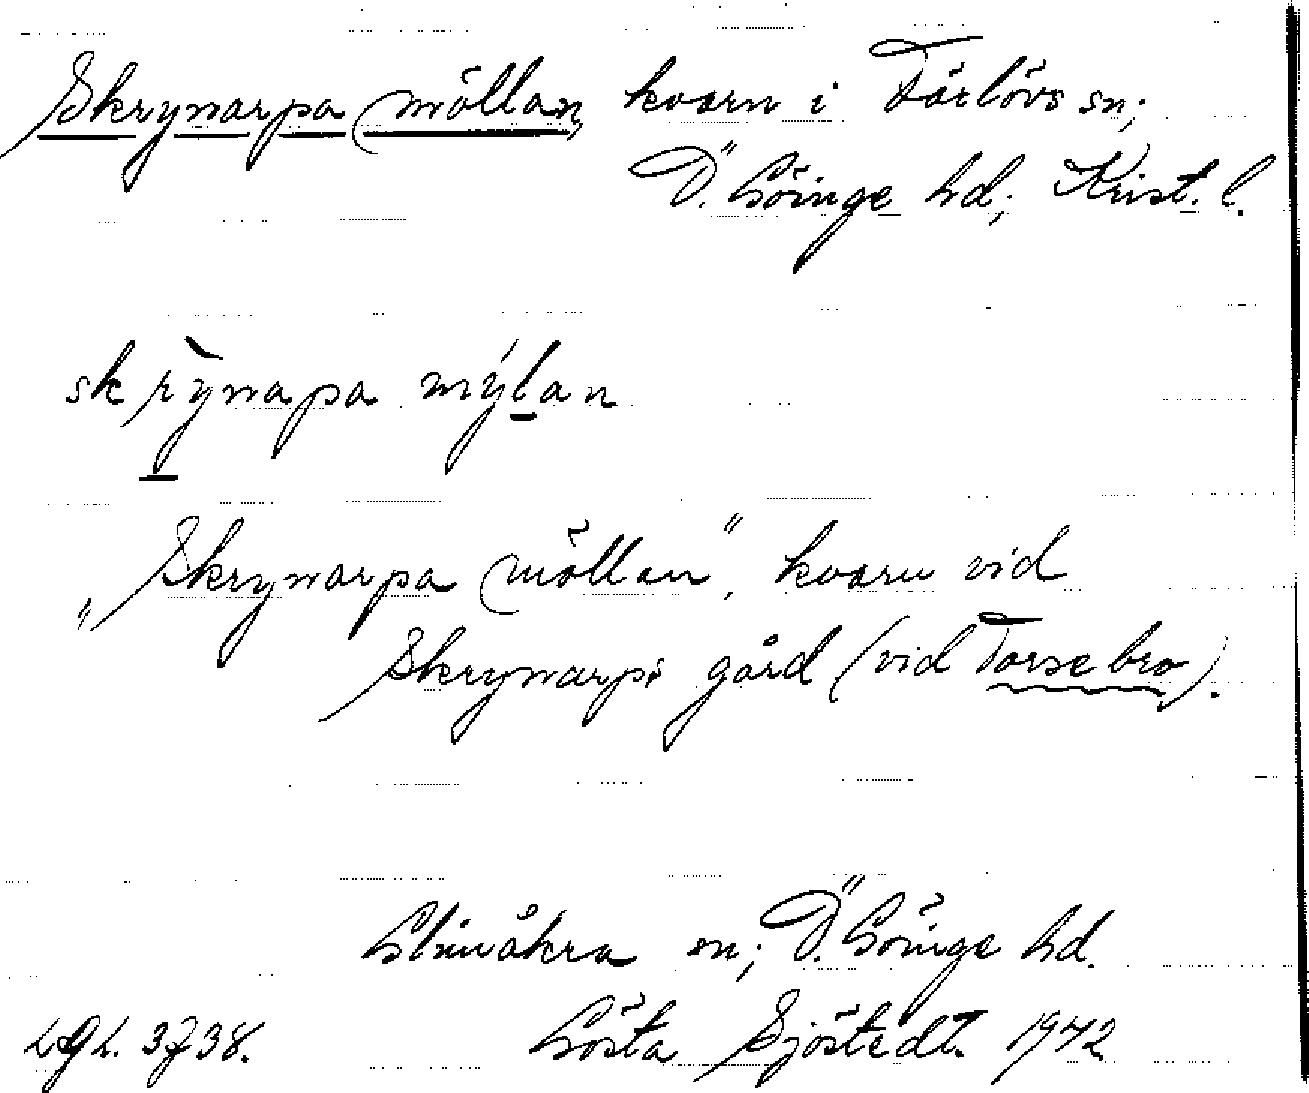 Skrynarpa möllan, kvarn i Färlövs sn;
Ö. Göinge hd; Krist. l.
skrỳnapa mýlan
„Skrynarpa möllan", kvarn vid
Skrynarps gård (vid Torsebro).
Glimåkra sn; Ö. Göinge hd.
Gösta Sjöstedt. 1942